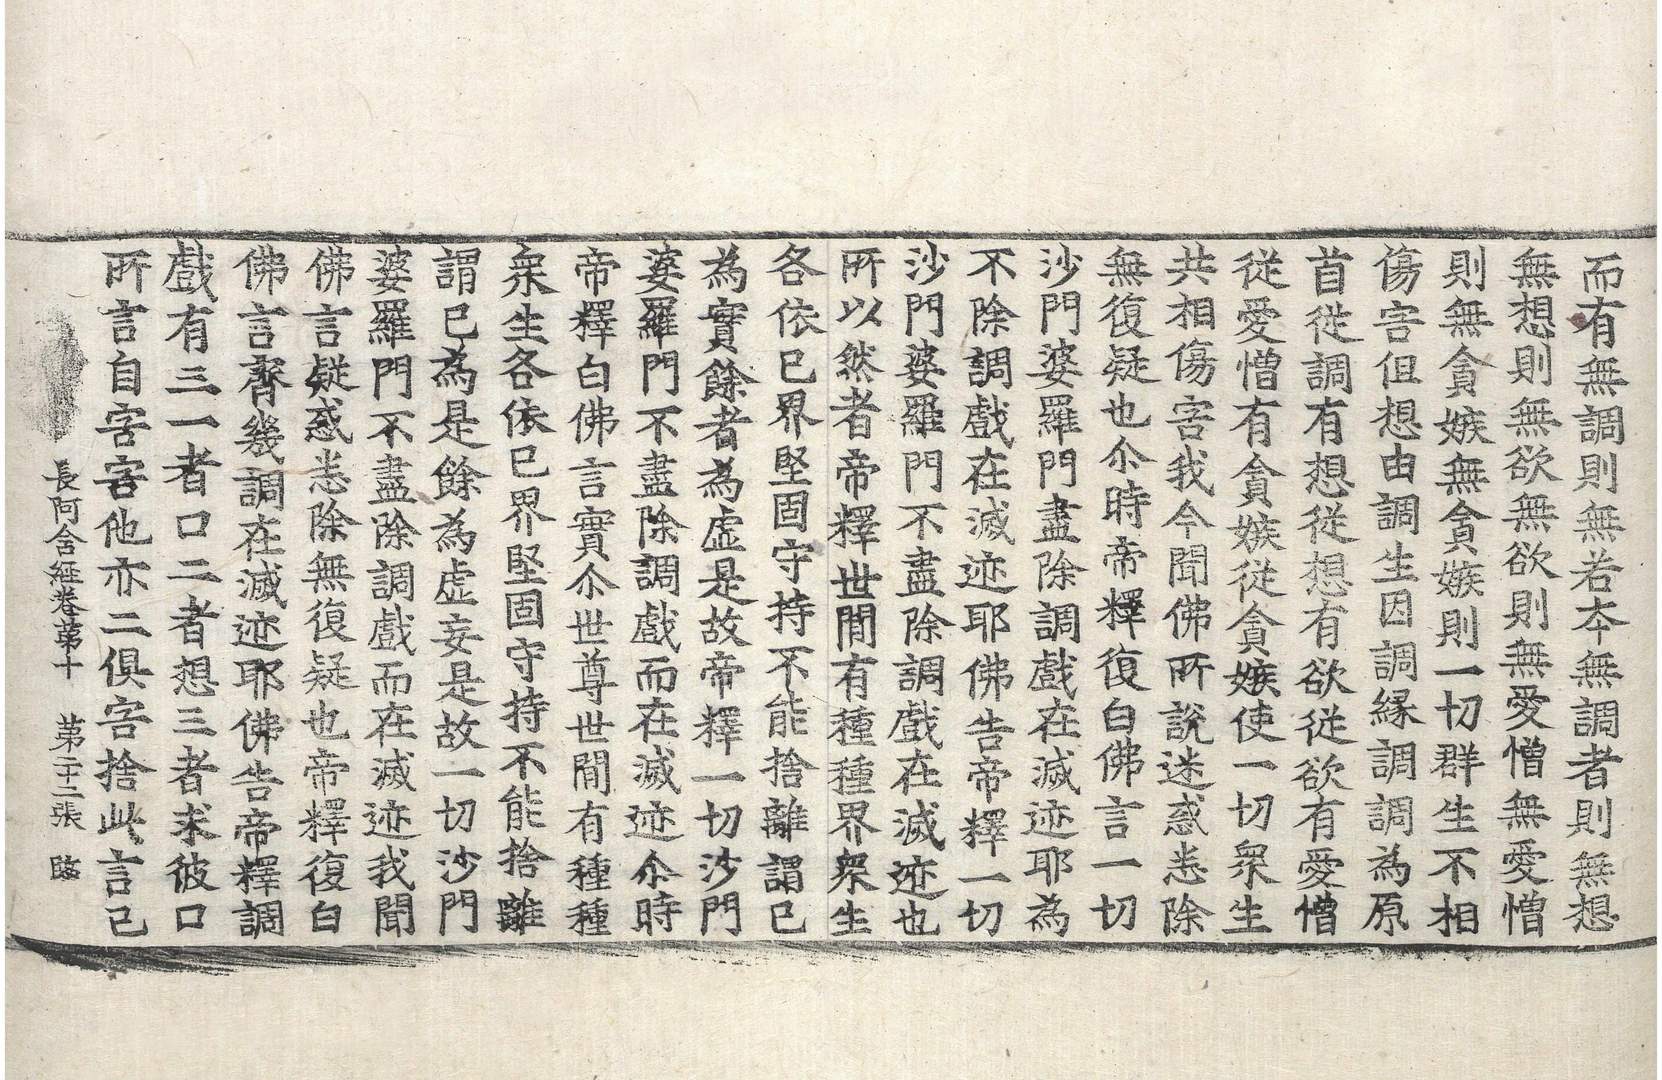 而有無調則無若本無調者則無想
無想則無欲無欲則無愛憎無愛憎
則無貪嫉無貪嫉則一切群生不相
傷害但想由調生因調緣調調為原
首從調有想從想有欲從欲有愛憎
從愛憎有貪嫉從貪嫉使一切衆生
共相傷害我今聞佛所說迷惑悉除
無復疑也尒時帝釋復白佛言一切
沙門婆羅門盡除調戲在滅迹耶為
不除調戲在滅迹耶佛告帝釋一切
沙門婆羅門不盡除調戲在滅迹也
所以然者帝釋世間有種種界衆生
各依已界堅固守持不能捨離謂已
為實餘者為虛是故帝釋一切沙門
婆羅門不盡除調戲而在滅迹尒時
帝釋白佛言實尒世尊世間有種種
衆生各依已界堅固守持不能捨離
謂已為是餘為虛妄是故一切沙門
婆羅門不盡除調戲而在滅迹我聞
佛言疑惑悉除無復疑也帝釋復白
佛言齊幾調在滅迹耶佛告帝釋調
戲有三一者口二者想三者求彼口
所言自害害他亦二俱害捨此言已
長阿含經卷第十　第二十二張　臨